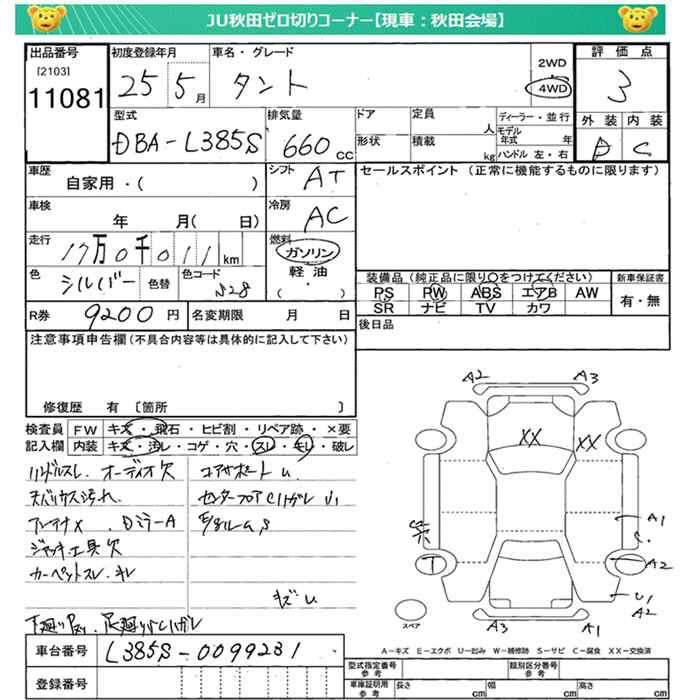 JU秋田ゼロ切りコーナー【現車：秋田会場】
出品番号
［2103］
11081
初度登録年月
25 5月
車名・グレード
タント
2WD
4WD
評価点
3
型式
DBA-L385S
排気量
660 cc
ドア
定員
人
形状
積載
kg
ディーラー・並行
モデル年式 年
ハンドル 左・右
外装 内装
D C
車歴
自家用・（ ）
シフト
AT
セールスポイント（正常に機能するものに限ります）
車検
年 月（ 日）
冷房
AC
走行
17万0千011km
燃料
ガソリン
軽油
・
（ ）
色
シルバー
色替
色コード
S28
装備品（純正品に限り○をつけてください）
新車保証書
PS PW ABS エアB AW
有・無
SR ナビ TV カワ
R券 9200円
名変期限 月 日
後日品
注意事項申告欄（不具合内容等は具体的に記入して下さい）
修復歴 有 〔箇所 〕
検査員記入欄
FW キズ・飛石・ヒビ割・リペア跡・×要
内装 キズ・汚レ・コゲ・穴・スレ・キレ・破レ
ハンドルスレ. オーディオ欠
コアサポートU
天バリウス汚れ
センターフロアCハガレ
アンテナX. DミラーA
ジャッキ工具欠
カーペットスレ. キレ
キズU
A2 A3
XX XX
A1
C
T
A2
U1
A2
A3 A1
スペア
A－キズ E－エクボ U－凹み W－補修跡 S－サビ C－腐食 XX－交換済
車台番号
L385S-0099231
登録番号
型式指定番号 参考
類別区分番号 参考
車庫証明用 参考
長さ cm
幅 cm
高さ cm